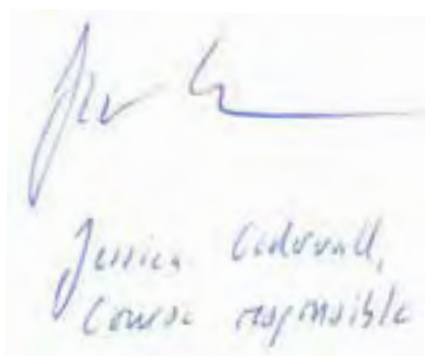 Jessica Cedervall,
Course responsible